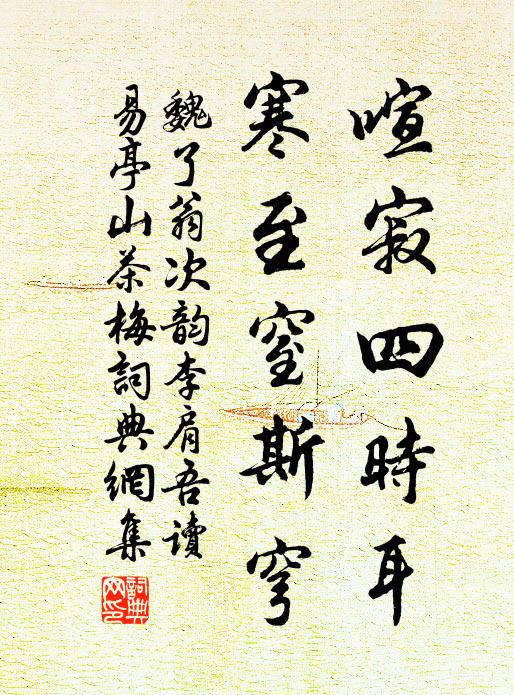 喧寂四時耳
寒至窒斯穹
魏了翁次韵李肩吾读
易亭山茶梅詞典網集
詞典網印